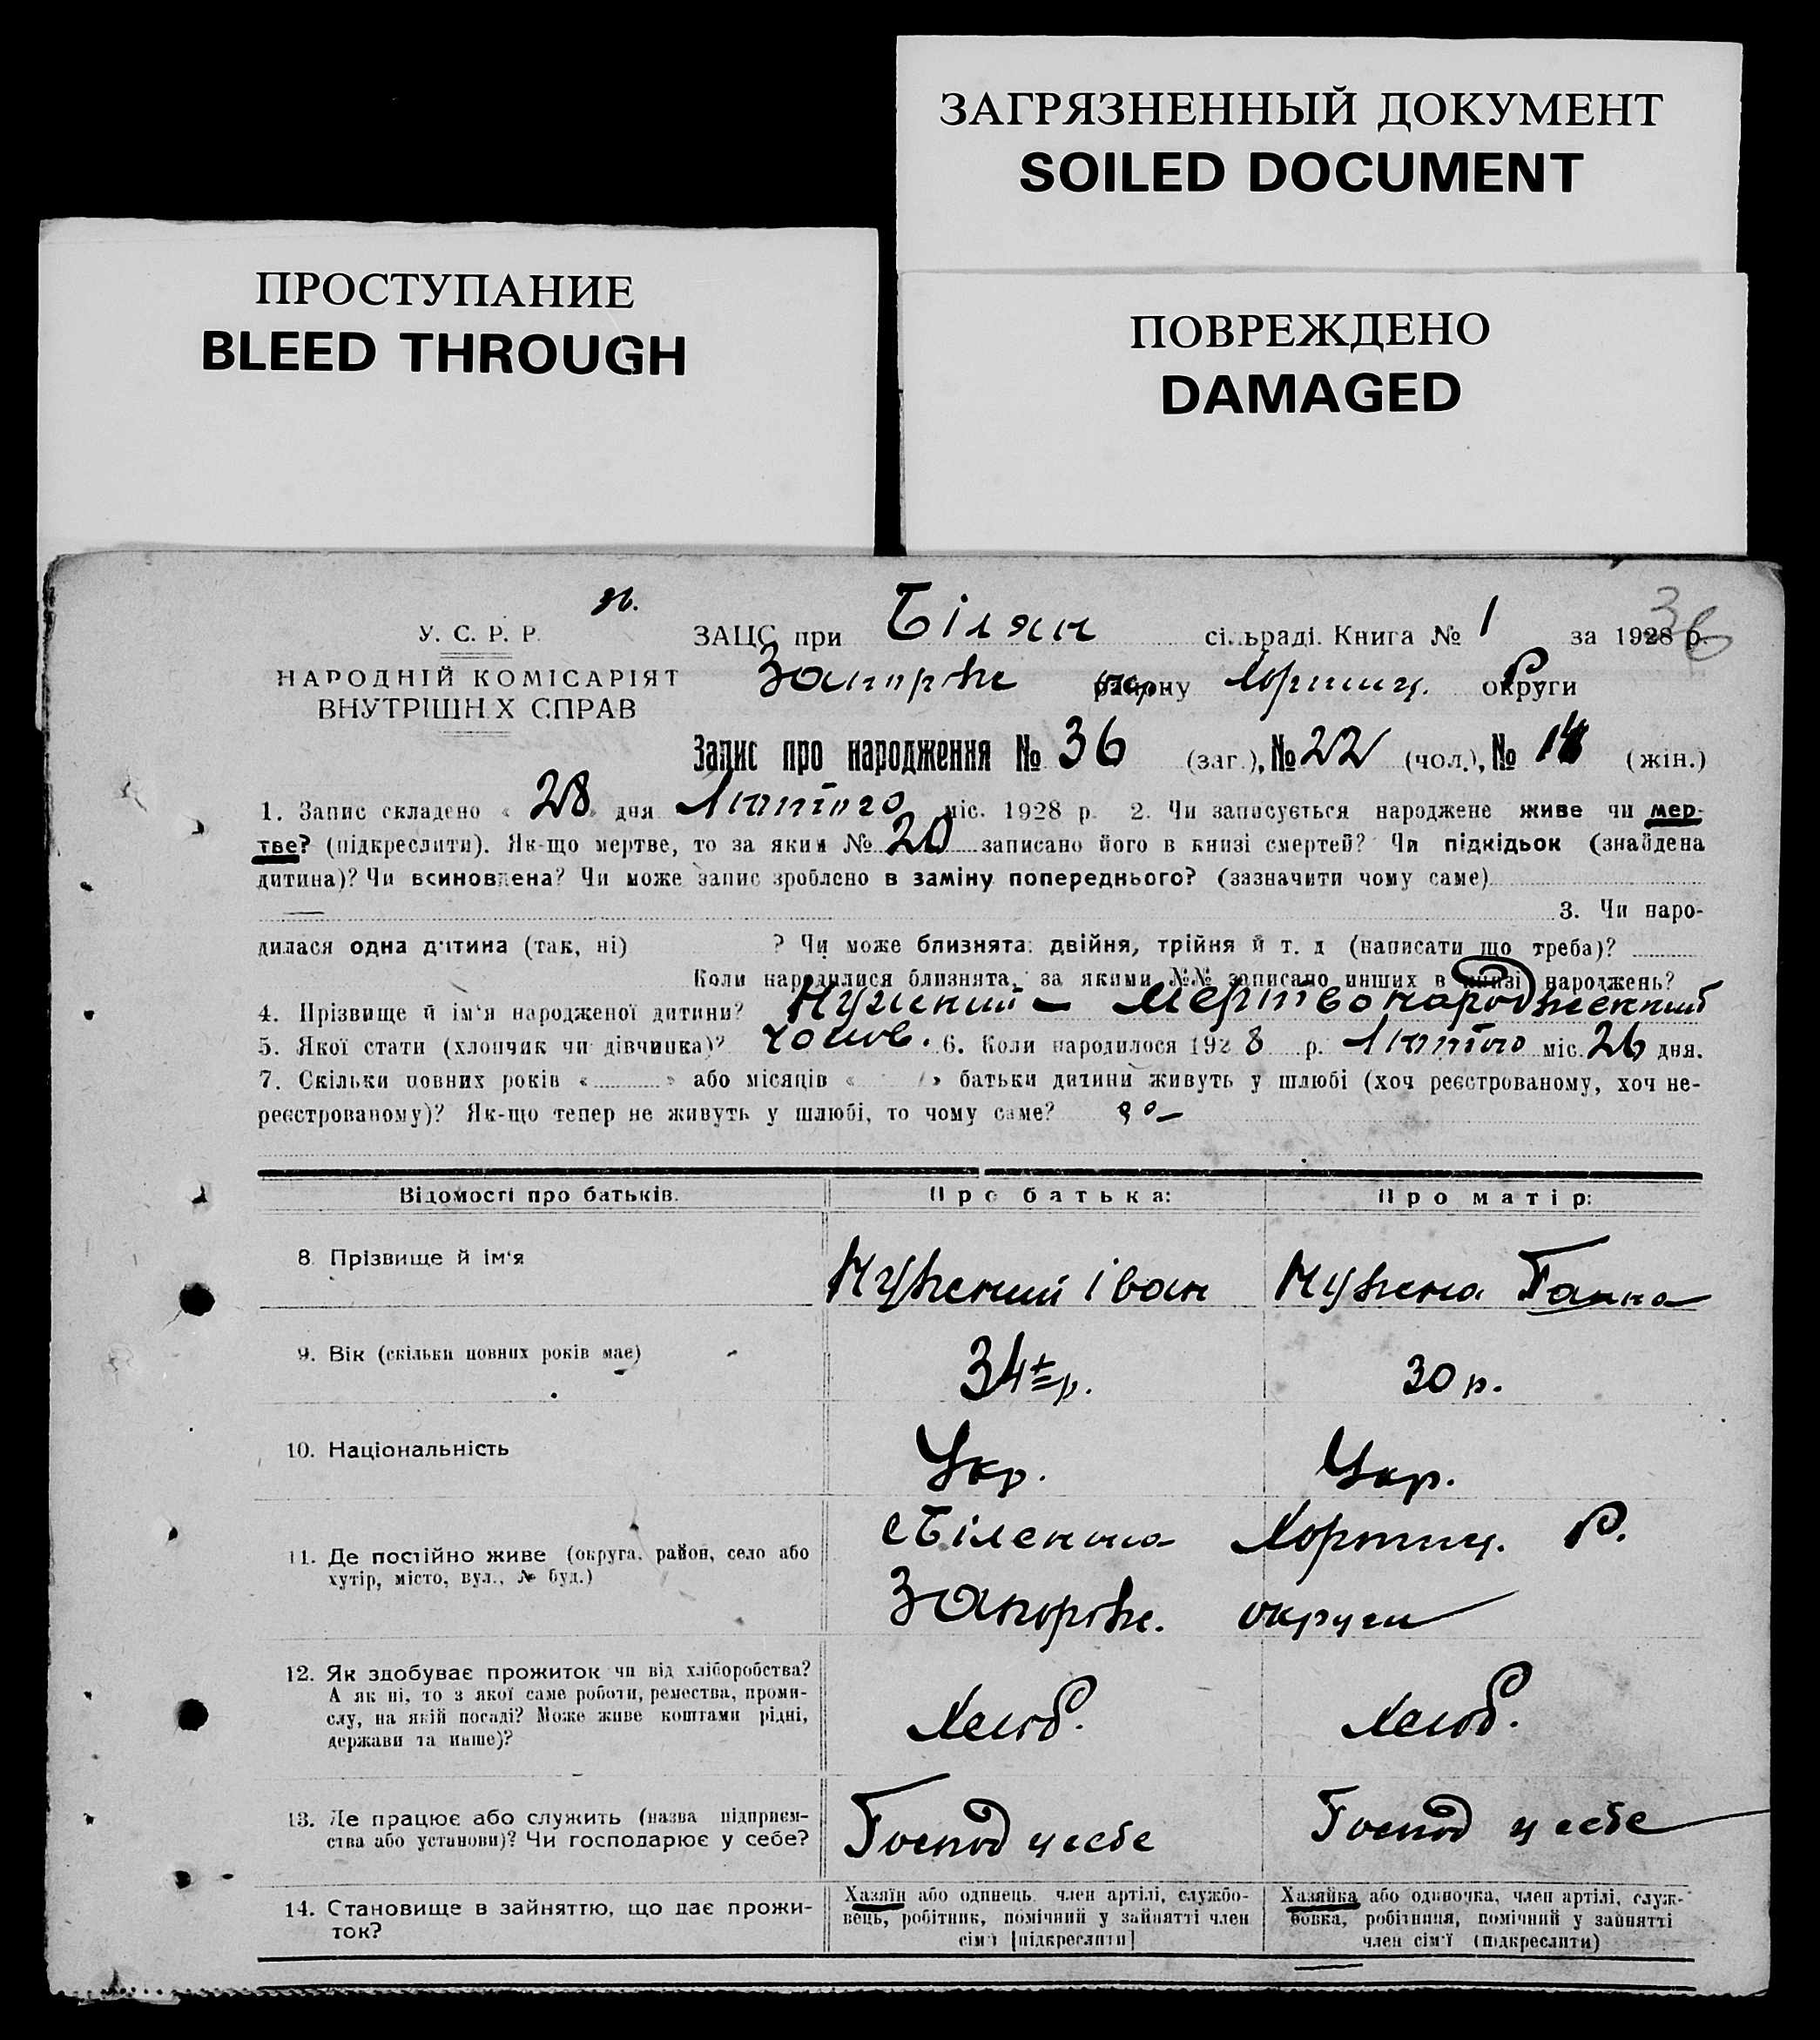 ЗАГРЯЗНЕННЫЙ ДОКУМЕНТ
SOILED DOCUMENT
ПРОСТУПАНИЕ
BLEED THROUGH
ПОВРЕЖДЕНО
DAMAGED
36
У. С. Р. Р.
НАРОДНІЙ КОМІСАРІЯТ
ВНУТРІШНІХ СПРАВ
ЗАЦС при Білян сільраді. Книга № 1 за 1928 р.
Запоріж району Хортиц. округи
Запис про народження № 36 (заг.), № 22 (чол.), № 14 (жін.)
1. Запис складено « 28 » дня Лютого міс. 1928 р. 2. Чи записується народжене живе чи мер-
тве? (підкреслити). Як-що мертве, то за яким № 20 записано його в книзі смертей? Чи підкідьок (знайдена
дитина)? Чи всиновлена? Чи може запис зроблено в заміну попереднього? (зазначити чому саме)
3. Чи наро-
дилася одна дитина (так, ні) ? Чи може близнята: двійня, трійня й т. д (написати що треба)?
Коли народилися близнята, за якими №№ записано инших в книзі народжень?
4. Прізвище й ім'я народженої дитини? Нужний — Мертвонародженний
5. Якої стати (хлопчик чи дівчинка)? чолов. 6. Коли народилося 1928 р. Лютого міс. 26 дня.
7. Скільки повних років « » або місяців « » батьки дитини живуть у шлюбі (хоч реєстрованому, хоч не-
реєстрованому)? Як-що тепер не живуть у шлюбі, то чому саме?
Відомості про батьків. Про батька: Про матір:
8. Прізвище й ім'я Нужний Іван Нужна Ганна
9. Вік (скільки повних років має) 34 р. 30 р.
10. Національність Укр. Укр.
11. Де постійно живе (округа, район, село або
хутір, місто, вул., № буд.)
с Біленька Хортиц. Р.
Запоріж. округи
12. Як здобуває прожиток чи від хліборобства?
А як ні, то з якої саме роботи, ремества, проми-
слу, на якій посаді? Може живе коштами рідні,
держави та инше)?
Хлиб. Хлиб.
13. Де працює або служить (назва підприєм-
ства або установи)? Чи господарює у себе?
Господ у себе Господ у себе
14. Становище в зайняттю, що дає прожи-
ток?
Хазяїн або одинець, член артілі, службо-
вець, робітник, помічний у зайнятті член
сім'ї [підкреслити]
Хазяйка або одиночка, член артілі, служ-
бовка, робітниця, помічний у зайнятті
член сім'ї (підкреслити)